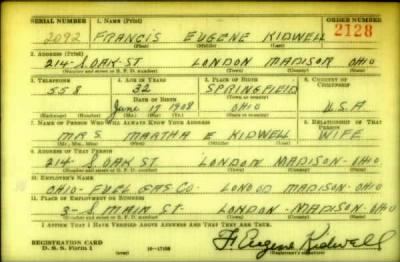 SERIAL NUMBER 1. NAME (Print) ORDER NUMBER
2092 FRANCIS EUGENE KIDWELL 2128
(First) (Middle) (Last)
2. ADDRESS (Print)
214- S OAK-ST LONDON MADISON OHIO
(Number and street or R. F. D. number) (Town) (County) (State)
3. TELEPHONE 4. AGE IN YEARS 5. PLACE OF BIRTH 6. COUNTRY OF CITIZENSHIP
558 32 SPRINGFIELD
DATE OF BIRTH (Town or county)
June 17 1908 OHIO U.S.A.
(Mo.) (Day) (Yr.) (State or country)
7. NAME OF PERSON WHO WILL ALWAYS KNOW YOUR ADDRESS 8. RELATIONSHIP OF THAT PERSON
MRS MARTHA E KIDWELL WIFE
(Mr., Mrs., Miss) (First) (Middle) (Last)
9. ADDRESS OF THAT PERSON
214 S OAK ST LONDON MADISON-OHIO
(Number and street or R. F. D. number) (Town) (County) (State)
10. EMPLOYER'S NAME
OHIO-FUEL GAS CO- LONDON MADISON-OHIO
11. PLACE OF EMPLOYMENT OR BUSINESS
3- S MAIN ST LONDON-MADISON-OHIO
(Number and street or R. F. D. number) (Town) (County) (State)
I AFFIRM THAT I HAVE VERIFIED ABOVE ANSWERS AND THAT THEY ARE TRUE.
REGISTRATION CARD
D. S. S. Form 1 (over) 16-17105 (Registrant's signature)
F. Eugene Kidwell